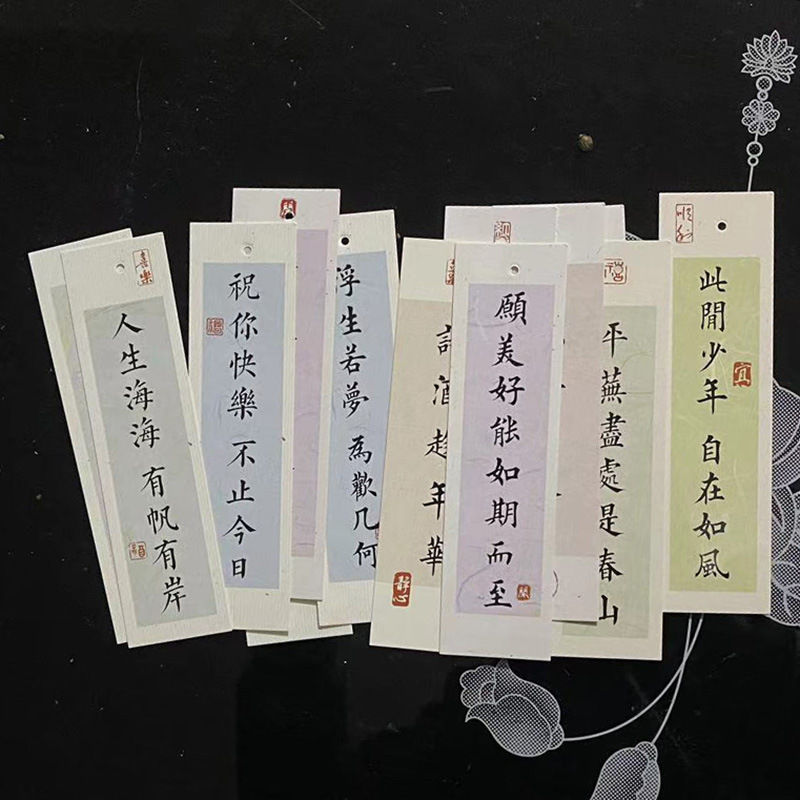 喜樂
人生海海 有帆有岸
祝你快樂 不止今日
浮生若夢 為歡几何
酒趁年華
靜心
願美好能如期而至
平蕪盡處是春山
順行
此間少年 自在如風
宜